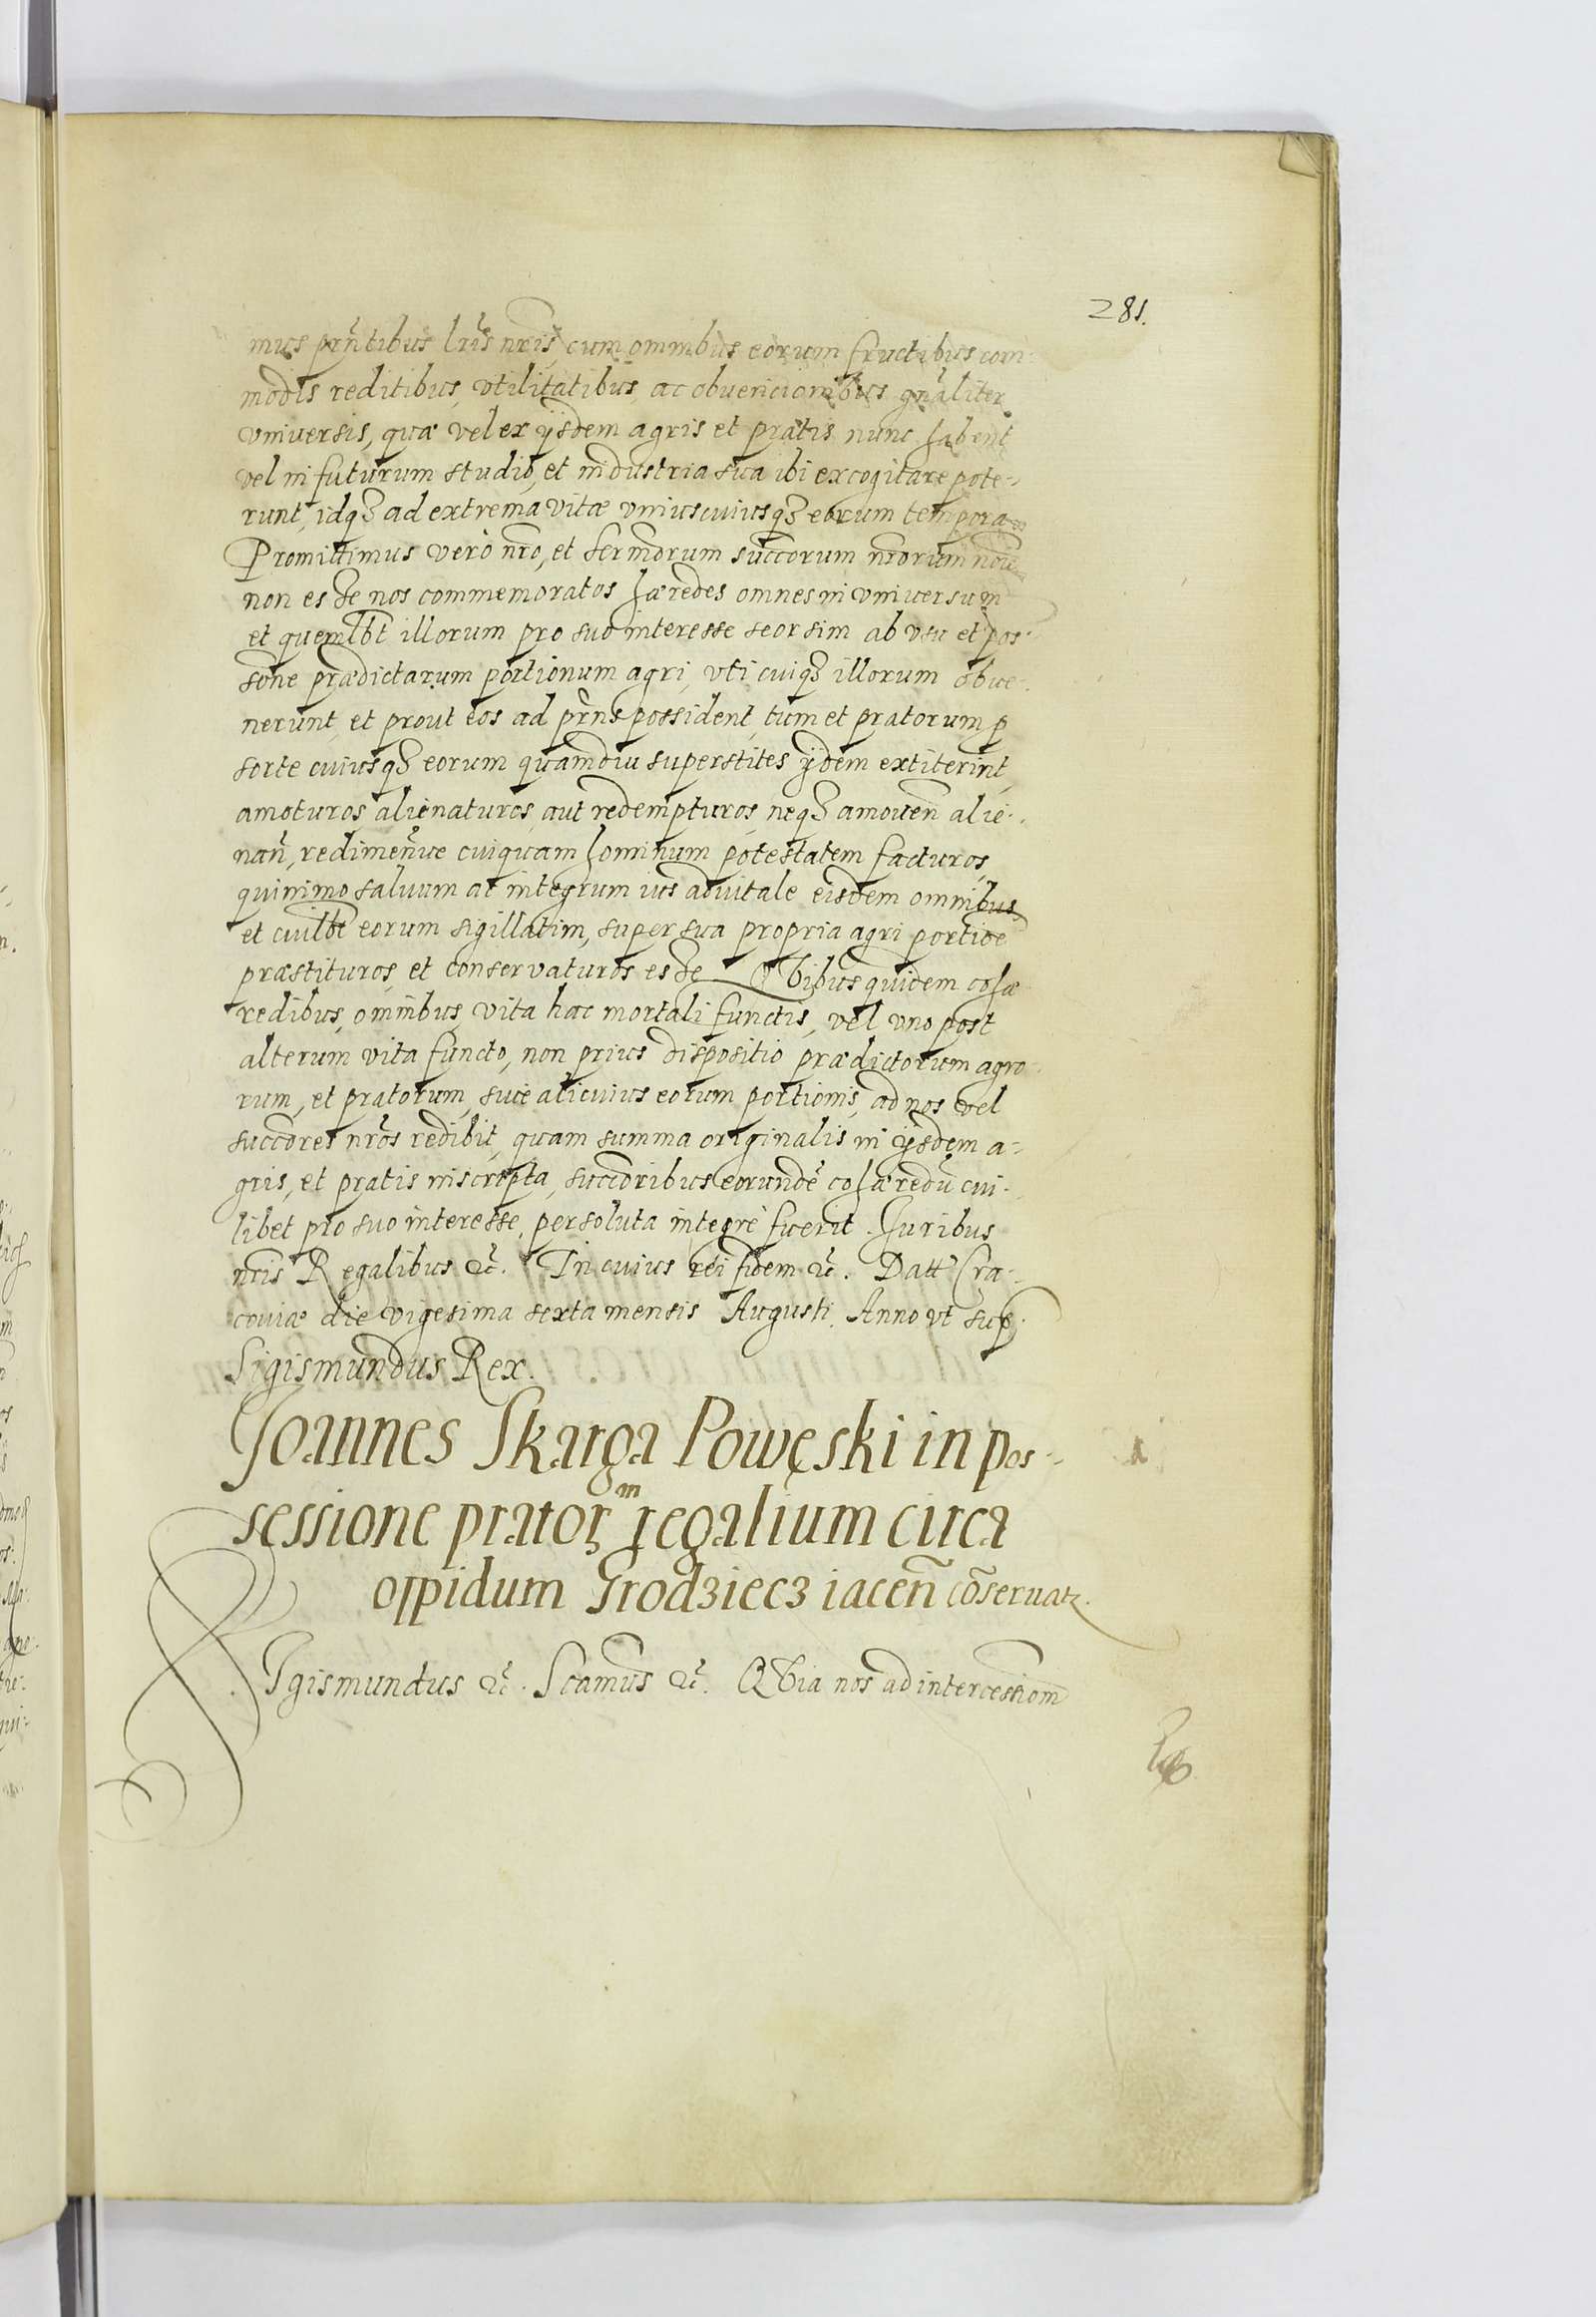 281.
mus prñtibus lris nris, cum omnibus eorum fructibus com-
modis reditibus, vtilitatibus, ac obuencionibus gñaliter
vniuersis, quæ vel ex ijsdem agris et pratis nunc habent
vel in futurum studio, et industria sua ibi excogitare pote-
runt, idqȝ ad extrema vitæ vniuscuiusqȝ eorum tempora.
Promittimus verò nro, et Sermorum succorum nrorum noie
non esse nos commemoratos hæredes omnes in vniuersum
et quemlbt illorum pro suo interesse seorsim ab vsu et pos-
sone prædictarum portionum agri, vti cuiqȝ illorum obue-
nerunt, et prout eos ad prñs possident, tum et pratorum p
sorte cuiusqȝ eorum quamdiu superstites ijdem extiterint,
amoturos, alienaturos, aut redempturos, neqȝ amouen̄ alie-
nan̄, redimen̄ue cuiquam hominum potestatem facturos,
quinimo saluum ac integrum ius aduitale eisdem omnibus
et cuilbt eorum sigillatim, super sua propria agri portioe
præstituros, et conservaturos esse. Qvibus quidem cohæ
redibus, omnibus vita hac mortali functis, vel vno post
alterum vita functo, non prius dispositio prædictorum agro-
rum, et pratorum, siue alicuius eorum portionis, ad nos vel
succores nros redibit, quam summa originalis in ijsdem a-
gris, et pratis inscripta, succoribus eorundē cohæredū cui-
libet pro suo interesse, persoluta integrè fuerit. Iuribus
nris Regalibus &c. In cuius rei fidem &c. Datt Cra-
couiæ die vigesima sexta mensis Augusti. Anno vt sup.
Sigismundus Rex.
Joannes Skarga Powęski in pos-
sessionem pratoꝝ regalium circa
oppidum Grodziecz iacen̄ cōseruatꝛ.
Sigismundus &c. Scamus &c. Qvia nos ad intercessionem